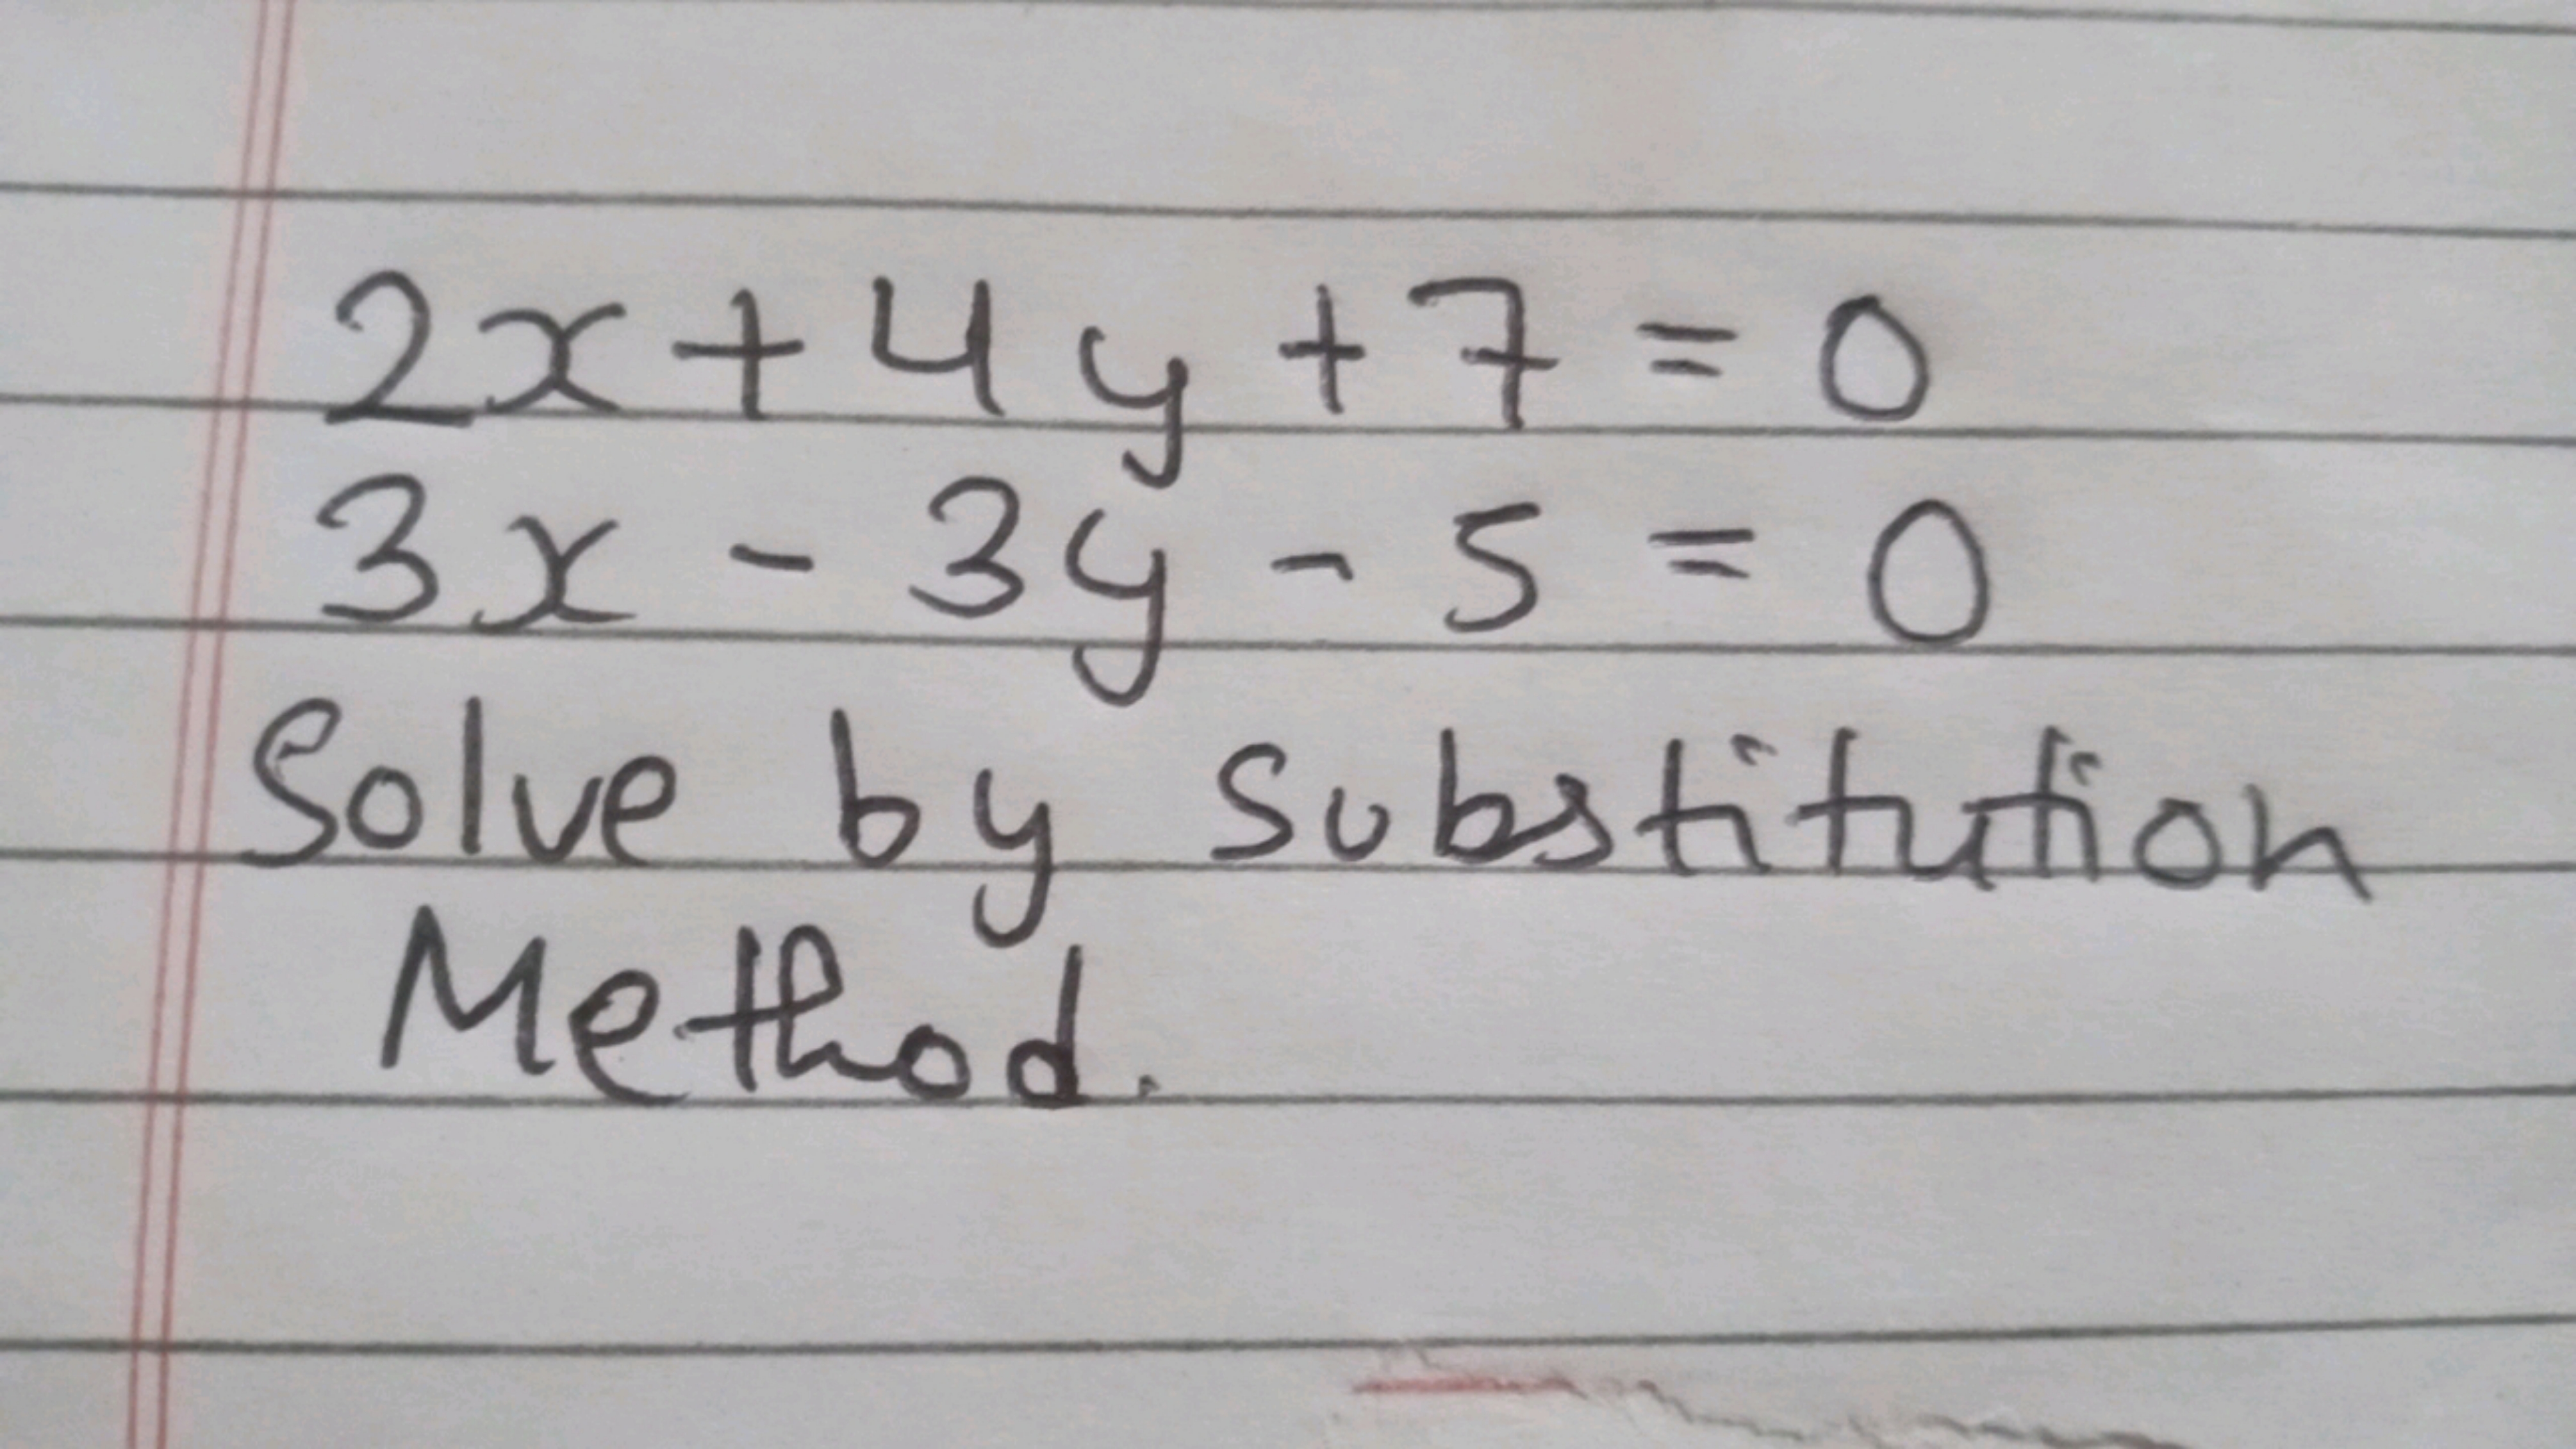 2x + 4y + 7 = 0
3x - 3y - 5 = 0
Solve by substitution
Method.